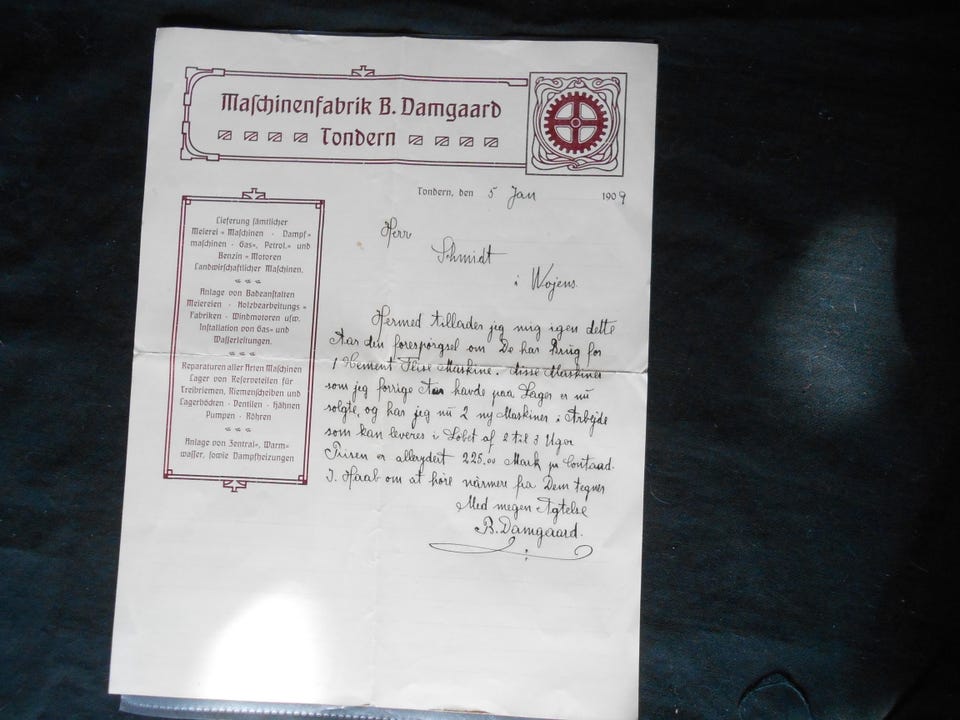 Maschinenfabrik B. Damgaard
Tondern
Tondern, den 5 Jan 1909
Lieferung sämtlicher
Meierei-Maschinen · Dampf-
maschinen · Gas-, Petrol.- und
Benzin-Motoren
Landwirtschaftlicher Maschinen.
Anlage von Badeanstalten
Meiereien · Holzbearbeitungs-
Fabriken · Windmotoren usw.
Installation von Gas- und
Wasserleitungen.
Reparaturen aller Arten Maschinen
Lager von Reserveteilen für
Treibriemen, Riemenscheiben und
Lagerböcken · Ventilen · Hähnen
Pumpen · Röhren
Anlage von Zentral-, Warm-
wasser, sowie Dampfheizungen
Herr
Schmidt
i Wojens.
Hermed tillader jeg mig igen dette
Aar den forespörgsel om De har Brug for
1 Flise Maskine. disse Maskiner
som jeg forrige Aar havde paa Lager er nu
solgte, og har jeg nu 2 ny Maskiner i Arbejde
som kan leveres i Löbet af 2 til 3 Uger
Prisen er 225,00 Mark pr Contant.
I Haab om at höre närmere fra Dem tegner
Med megen Agtelse
B. Damgaard.